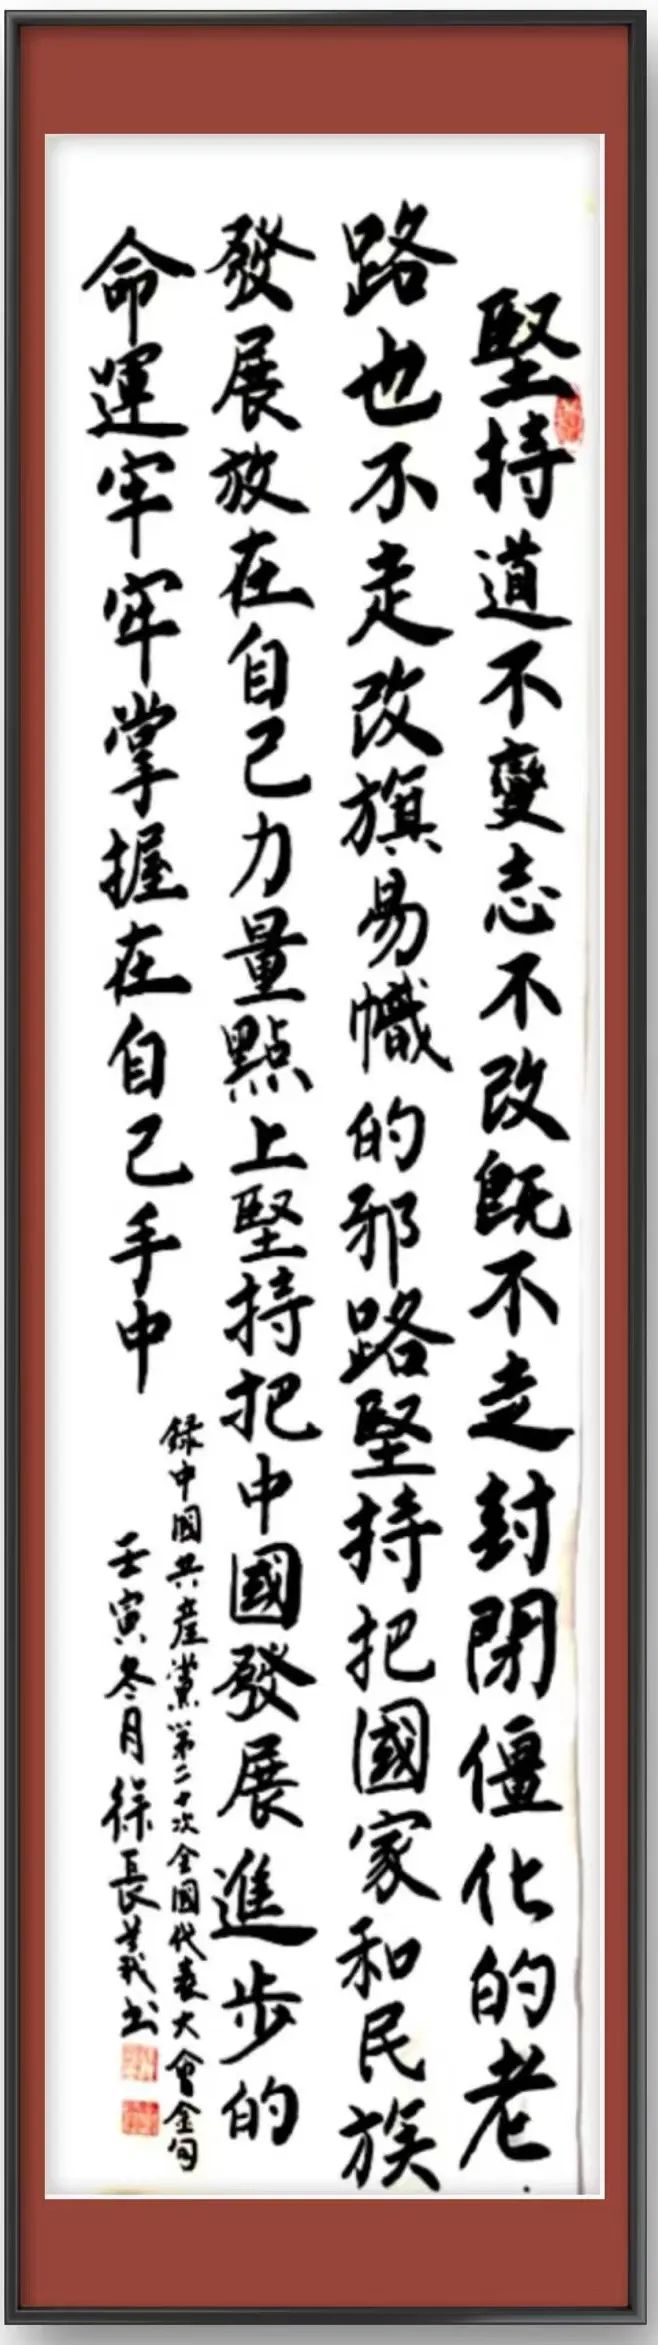 堅持道不變志不改既不走封閉僵化的老
路也不走改旗易幟的邪路堅持把國家和民族
發展放在自己力量點上堅持把中國發展進步的
命運牢牢掌握在自己手中
録中國共産黨第二十次全國代表大會金句
壬寅冬月徐長義书